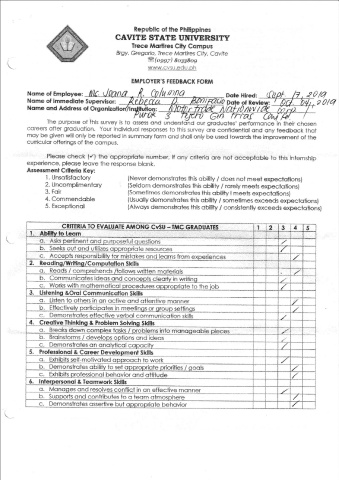 Republic of the Philippines
CAVITE STATE UNIVERSITY
Trece Martires City Campus
Brgy. Gregorio, Trece Martires City, Cavite
www.cvsu.edu.ph
EMPLOYER'S FEEDBACK FORM
Name of Employee: Mc Joana R. Columna Date Hired: Sept 17, 2019
Name of Immediate Supervisor: Rebecca D. Bonifacio Date of Review: Oct 04, 2019
Name and Address of Organization/Institution: Motortrade Nationwide Corp.
Purok 3 Tejero Gen Trias Cavite
The purpose of this survey is to assess and understand our graduates' performance in their chosen
careers after graduation. Your individual responses to this survey are confidential and any feedback that
may be given will only be reported in summary form and shall only be used towards the improvement of the
curricular offerings of the campus.
Please check (✓) the appropriate number. If any criteria are not acceptable to this internship
experience, please leave the response blank.
Assessment Criteria Key:
1. Unsatisfactory (Never demonstrates this ability / does not meet expectations)
2. Uncomplimentary (Seldom demonstrates this ability / rarely meets expectations)
3. Fair (Sometimes demonstrates this ability / meets expectations)
4. Commendable (Usually demonstrates this ability / sometimes exceeds expectations)
5. Exceptional (Always demonstrates this ability / consistently exceeds expectations)
CRITERIA TO EVALUATE AMONG CvSU – TMC GRADUATES 1 2 3 4 5
1. Ability to Learn
a. Asks pertinent and purposeful questions ✓
b. Seeks out and utilizes appropriate resources ✓
c. Accepts responsibility for mistakes and learns from experiences ✓
2. Reading/Writing/Computation Skills
a. Reads / comprehends /follows written materials ✓
b. Communicates ideas and concepts clearly in writing ✓
c. Works with mathematical procedures appropriate to the job ✓
3. Listening &Oral Communication Skills
a. Listen to others in an active and attentive manner ✓
b. Effectively participates in meetings or group settings ✓
c. Demonstrates effective verbal communication skills ✓
4. Creative Thinking & Problem Solving Skills
a. Breaks down complex tasks / problems into manageable pieces ✓
b. Brainstorms / develops options and ideas ✓
c. Demonstrates an analytical capacity ✓
5. Professional & Career Development Skills
a. Exhibits self-motivated approach to work ✓
b. Demonstrates ability to set appropriate priorities / goals ✓
c. Exhibits professional behavior and attitude ✓
6. Interpersonal & Teamwork Skills
a. Manages and resolves conflict in an effective manner ✓
b. Supports and contributes to a team atmosphere ✓
c. Demonstrates assertive but appropriate behavior ✓